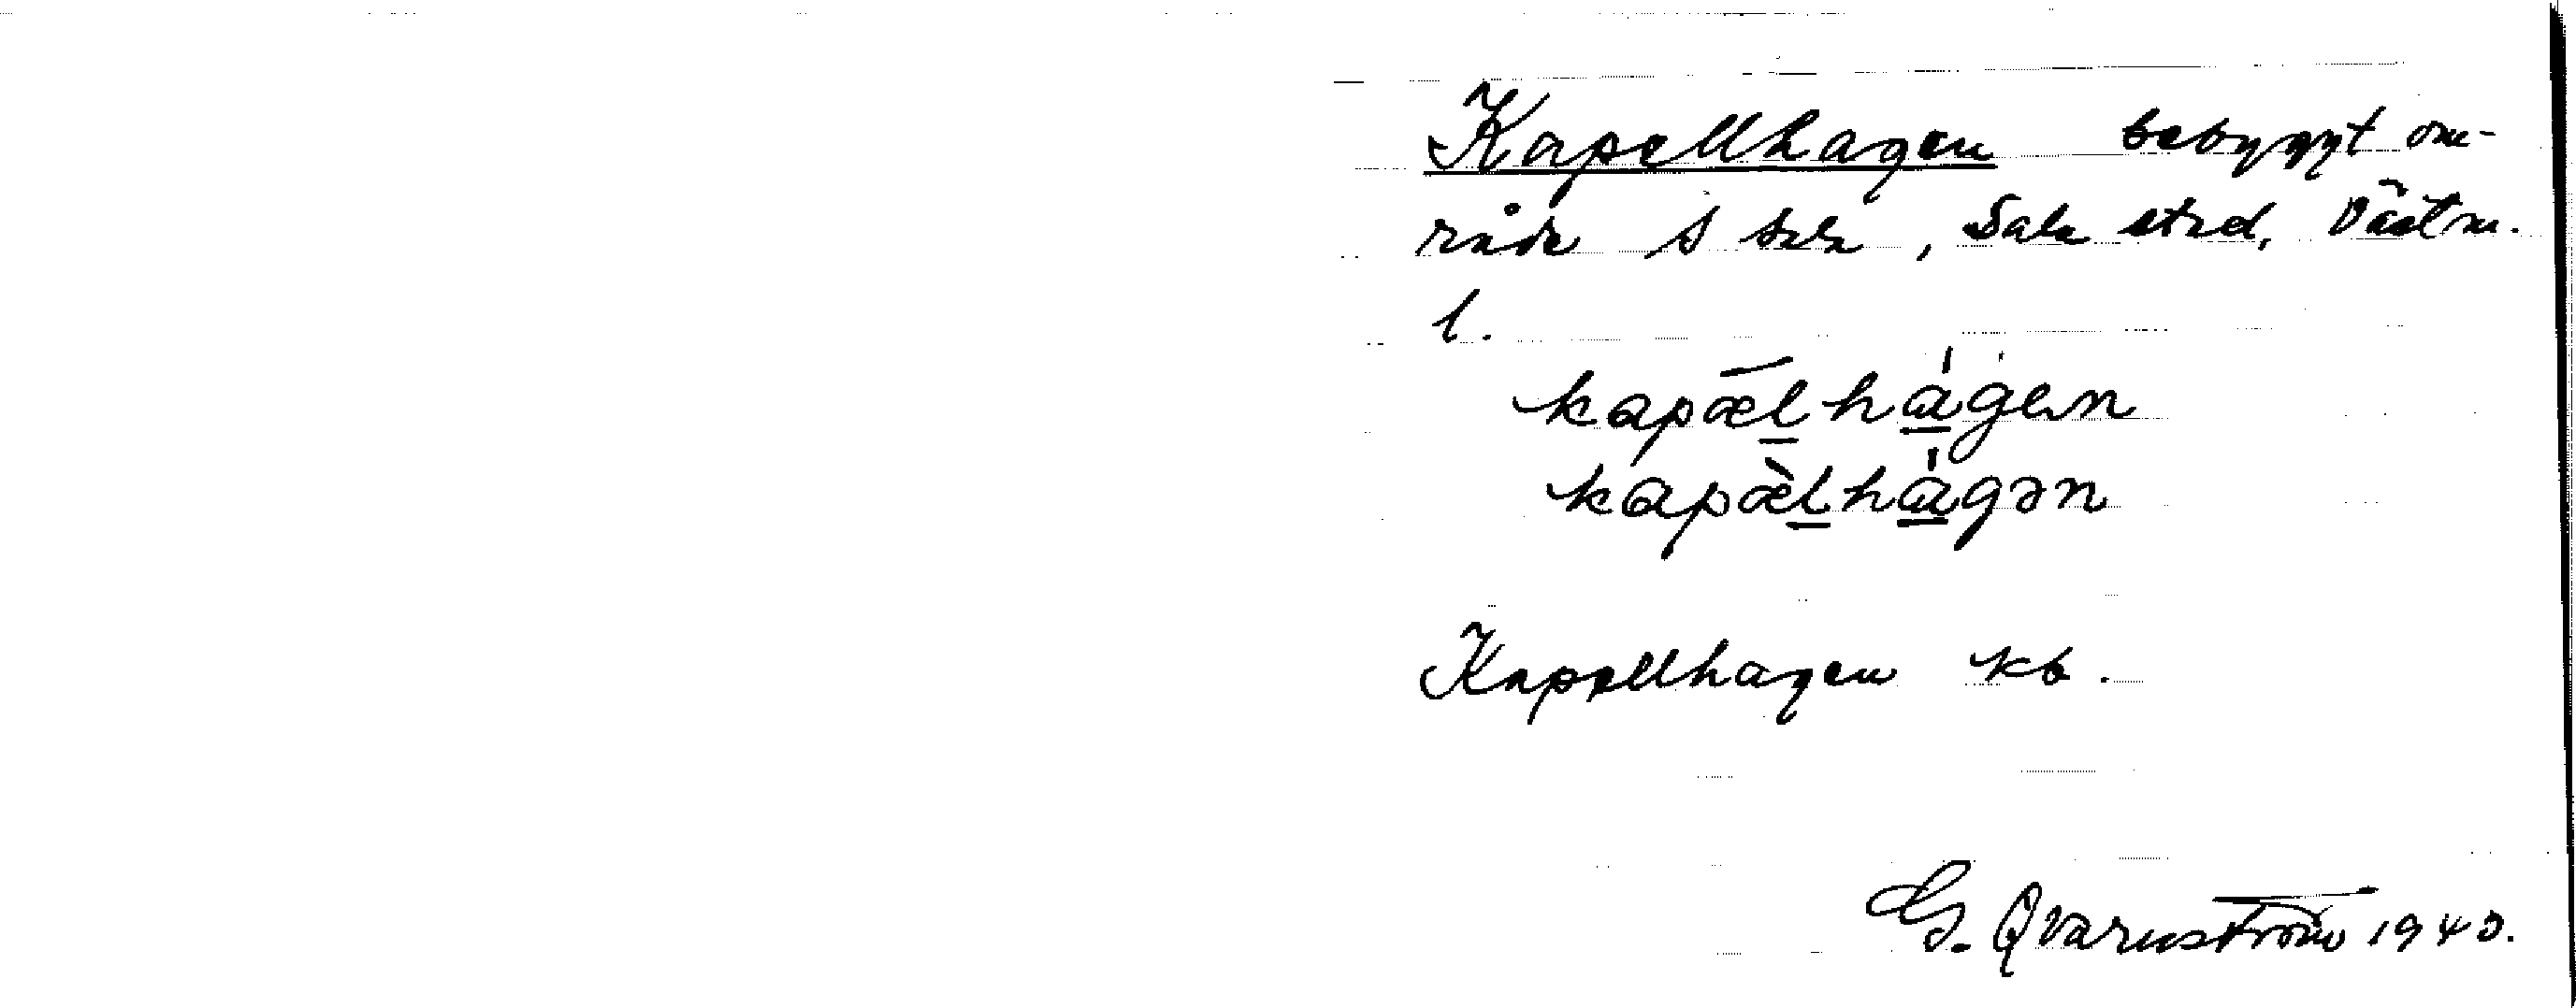 Kapellhagen bebyggt om-
råde i Sala, Sala stad, Västm.
l.
kapæ̀lhágen
kapæ̀lhágən
Kapellhagen kb.
G. Qvarnström 1940.